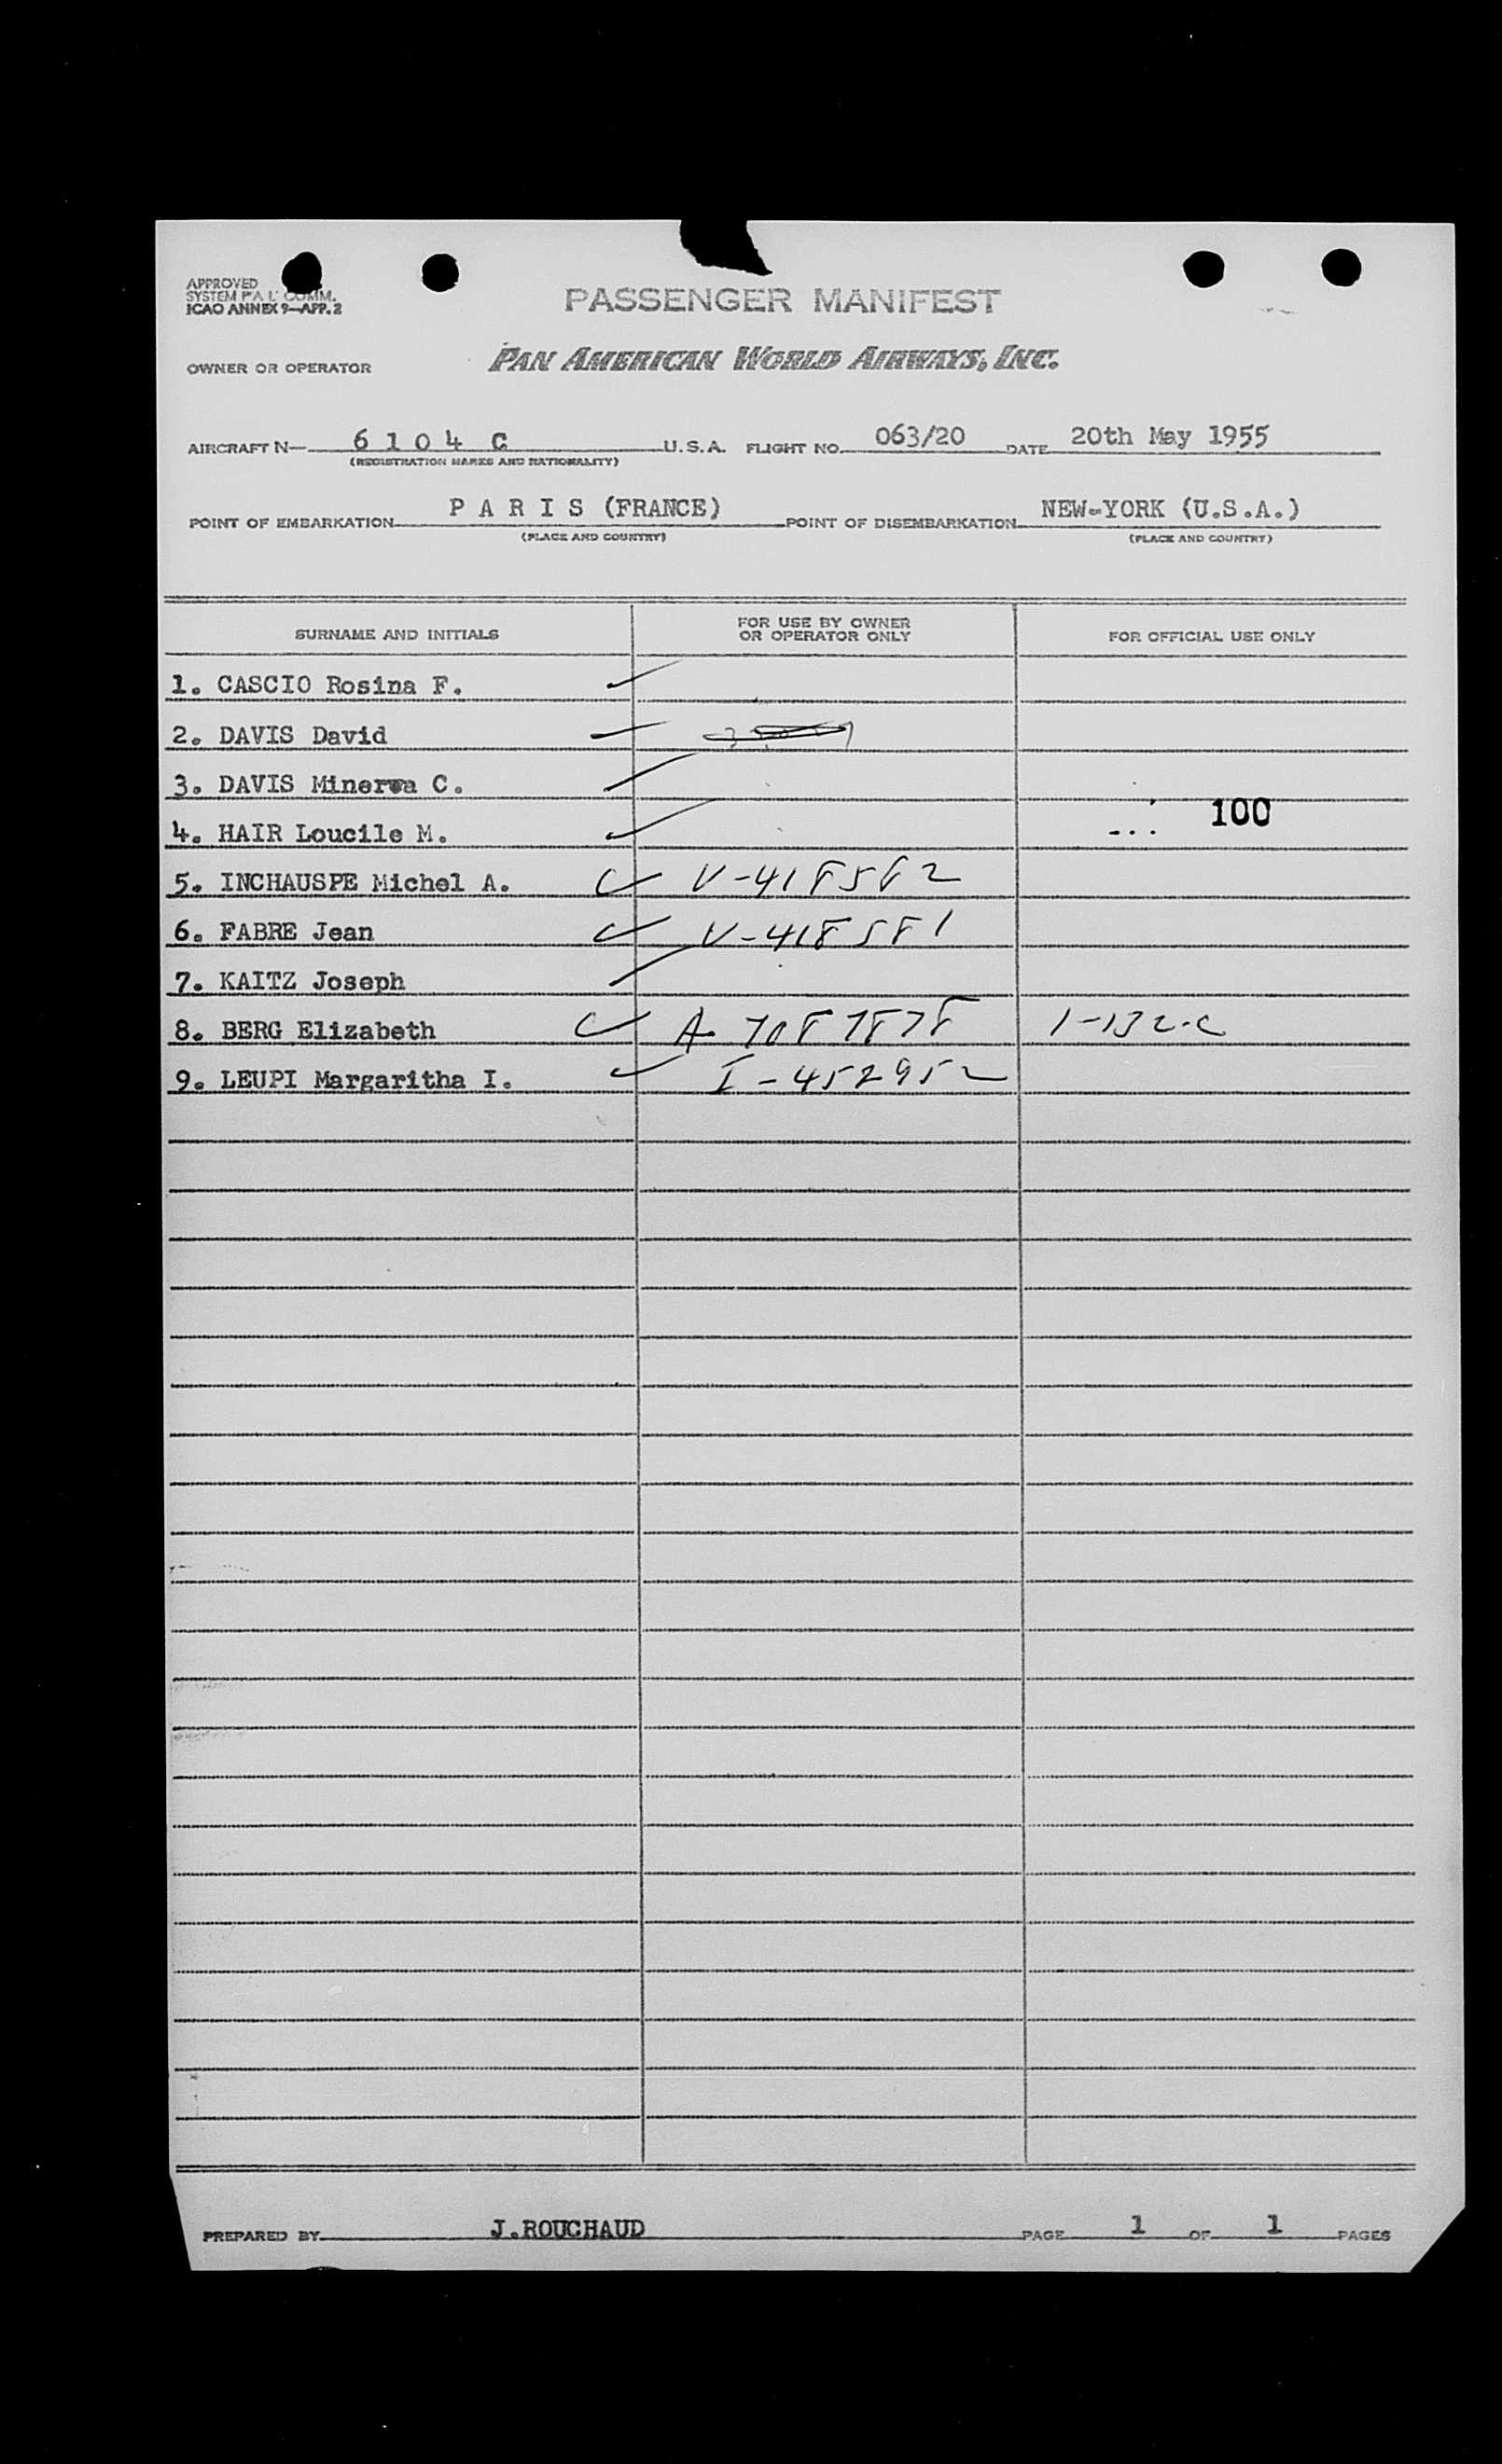 APPROVED
SYSTEM COMM.
ICAO ANNEX 9—APP. 2
PASSENGER MANIFEST
OWNER OR OPERATOR PAN AMERICAN WORLD AIRWAYS, INC.
AIRCRAFT N— 6 1 0 4 C U.S.A. FLIGHT NO. 063/20 DATE 20th May 1955
(REGISTRATION MARKS AND NATIONALITY)
POINT OF EMBARKATION P A R I S (FRANCE) POINT OF DISEMBARKATION NEW-YORK (U.S.A.)
(PLACE AND COUNTRY) (PLACE AND COUNTRY)
SURNAME AND INITIALS FOR USE BY OWNER OR OPERATOR ONLY FOR OFFICIAL USE ONLY
1. CASCIO Rosina F.
2. DAVIS David
3. DAVIS Minerva C.
100
4. HAIR Loucile M.
5. INCHAUSPE Michel A. V-418582
6. FABRE Jean V-418581
7. KAITZ Joseph
8. BERG Elizabeth A- 7087878 1-132-C
9. LEUPI Margaritha I. I-452952
PREPARED BY J.ROUCHAUD PAGE 1 OF 1 PAGES